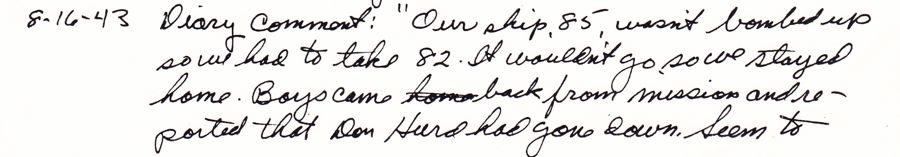 8-16-43 Diary comment: "Our ship, 85, wasn't bombed up
so we had to take 82. It wouldn't go, so we stayed
home. Boys came home back from mission and re-
ported that Don Hurd had gone down. Seem to